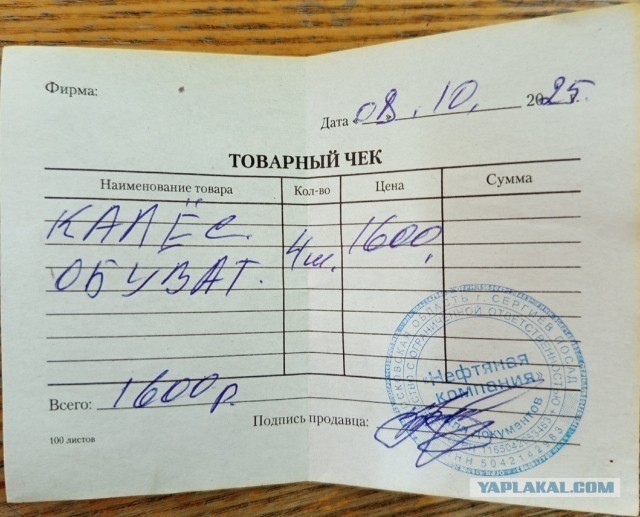 Фирма:
Дата «08». 10. 2025 г.
ТОВАРНЫЙ ЧЕК
Наименование товара Кол-во Цена Сумма
КАЛЁС 4ш. 1600,
ОБУВАТ.
Всего: 1600 р
Подпись продавца:
100 листов
МОСКОВСКАЯ ОБЛАСТЬ г. СЕРГИЕВ ПОСАД
ОБЩЕСТВО С ОГРАНИЧЕННОЙ ОТВЕТСТВЕННОСТЬЮ
«Нефтяная
компания»
для документов
ИНН 5042142783
YAPLAKAL.COM